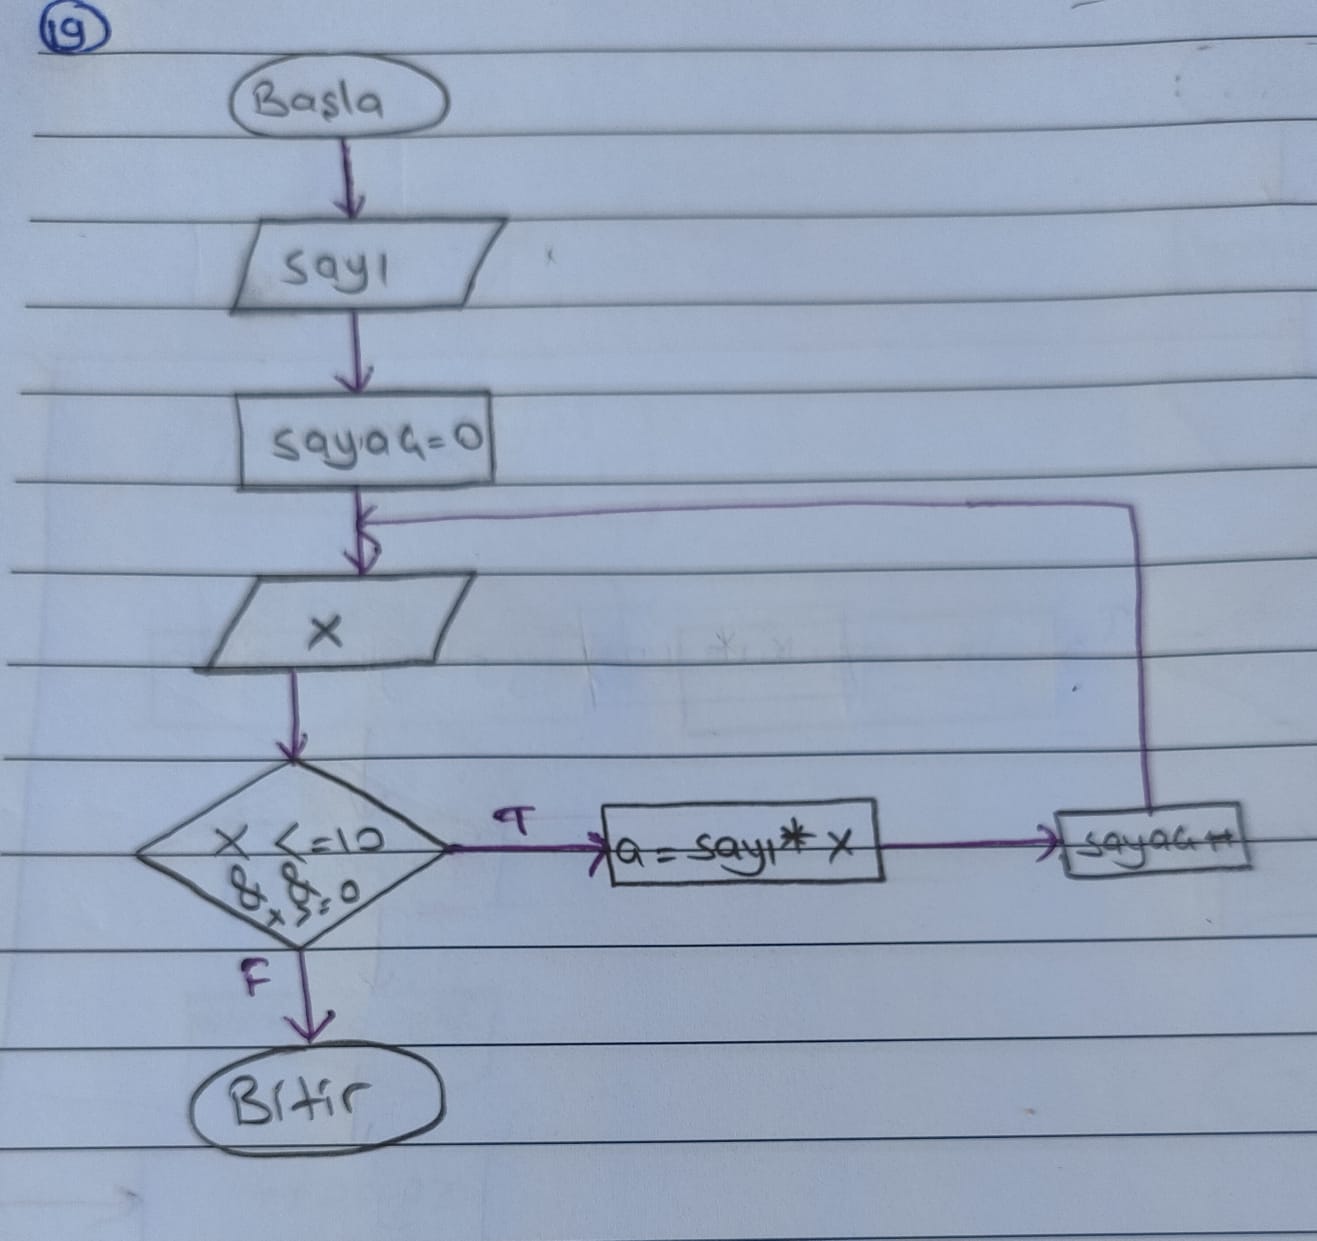 19
Başla
sayı
sayaç=0
x
x <=10
&&
x>=0
T
a = sayı * x
sayaç++
F
Bitir